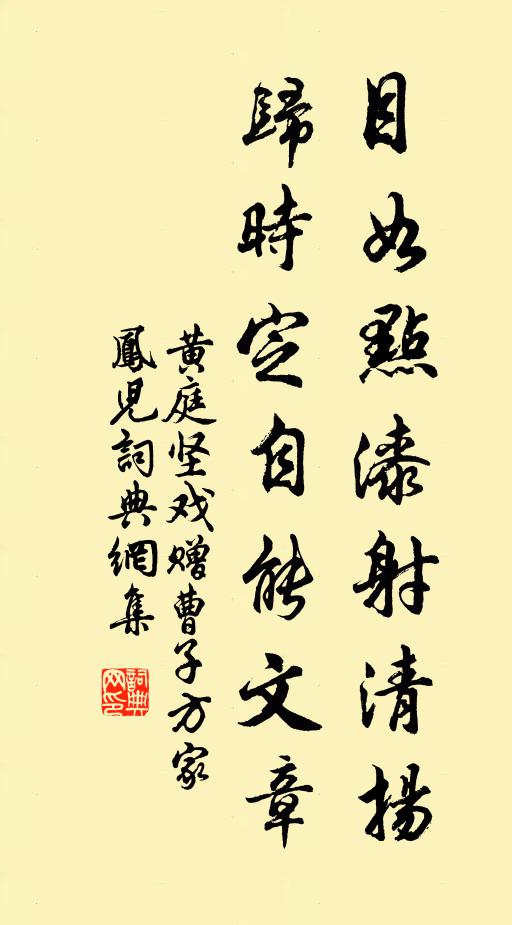 目如點漆射清揚
歸時定自能文章
黄庭坚戏赠曹子方家
鳳児詞典網集
詞典
网印